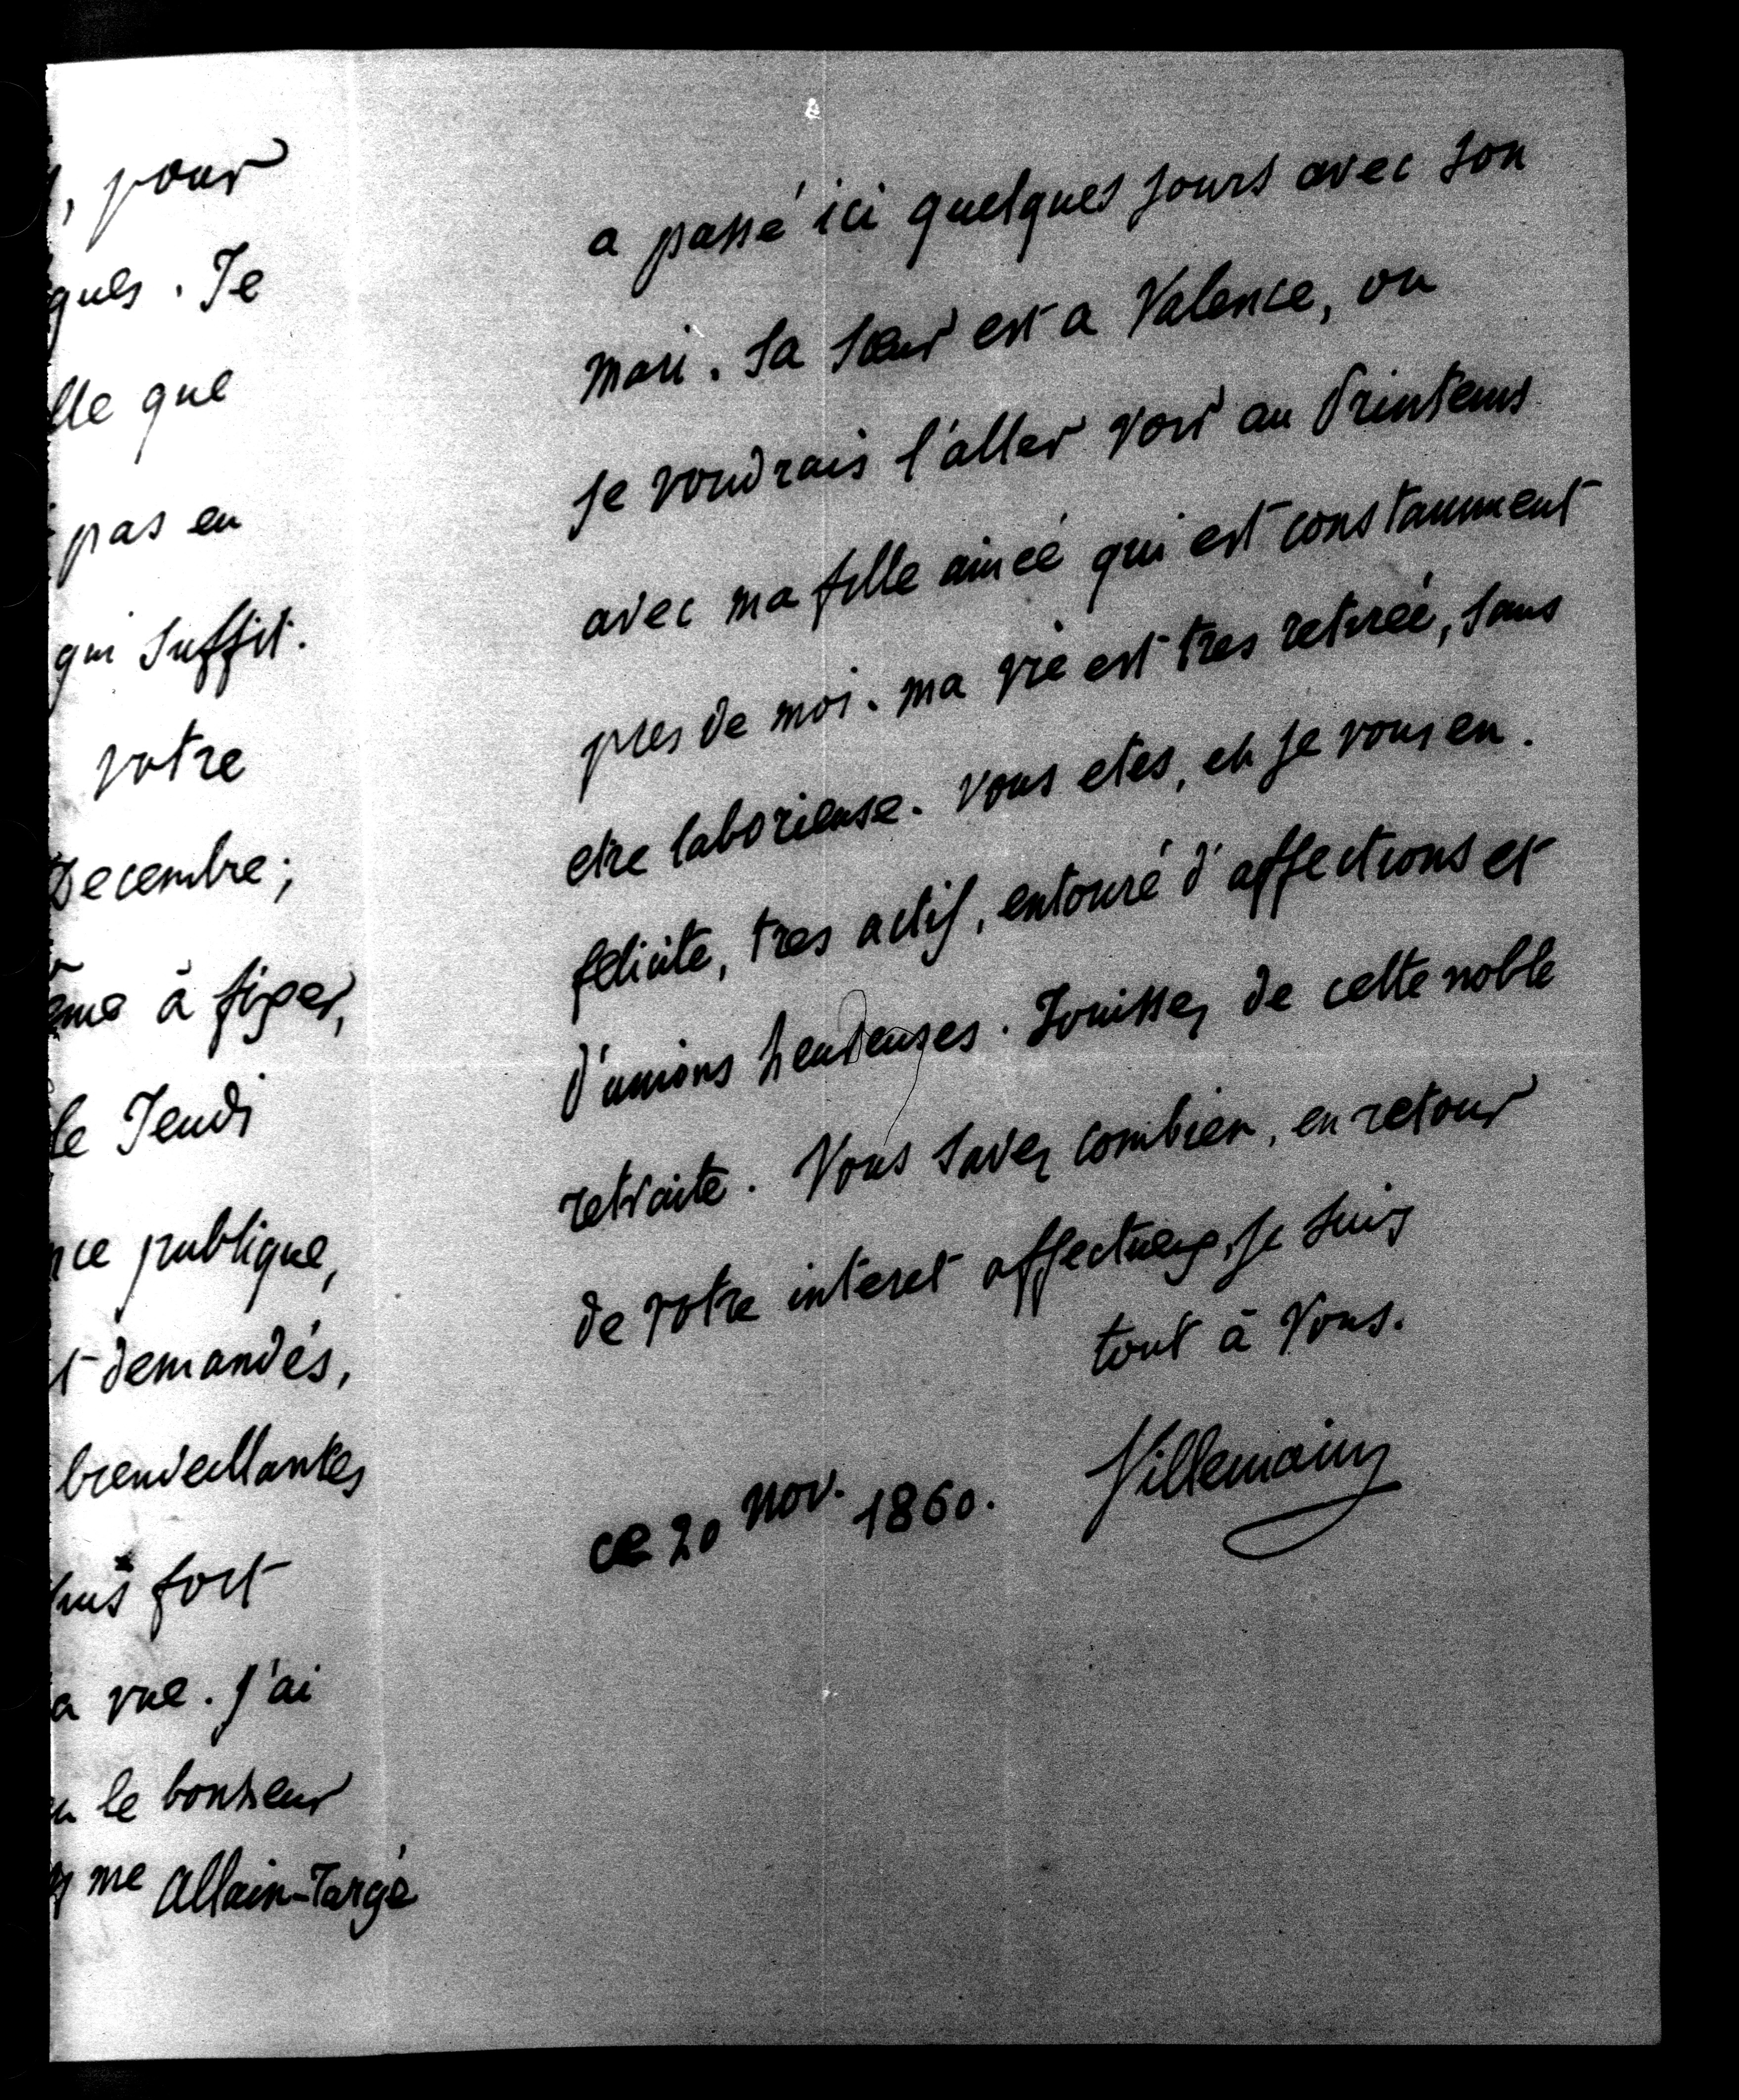 , pour
ques. Je
lle que
pas eu
qui suffit.
votre
Decembre;
ême à fixer,
le Jeudi
nce publique,
t demandés,
bienveillantes
plus fort
a vue. J'ai
le bonheur
me Allain-Targé
a passé ici quelques jours avec son
mari. Sa soeur est a Valence, ou
je voudrais l'aller voir au Printems
avec ma fille ainée qui est constamment
pres de moi. ma vie est tres retirée, sans
etre laborieuse. Vous etes, et je vous en.
felicite, tres actif, entouré d'affections et
d'unions heureuses. Jouissez de cette noble
retraite. Vous savez combien, en retour
de votre interet affectueux, je suis
tout à Vous.
Villemain
ce 20 nov. 1860.